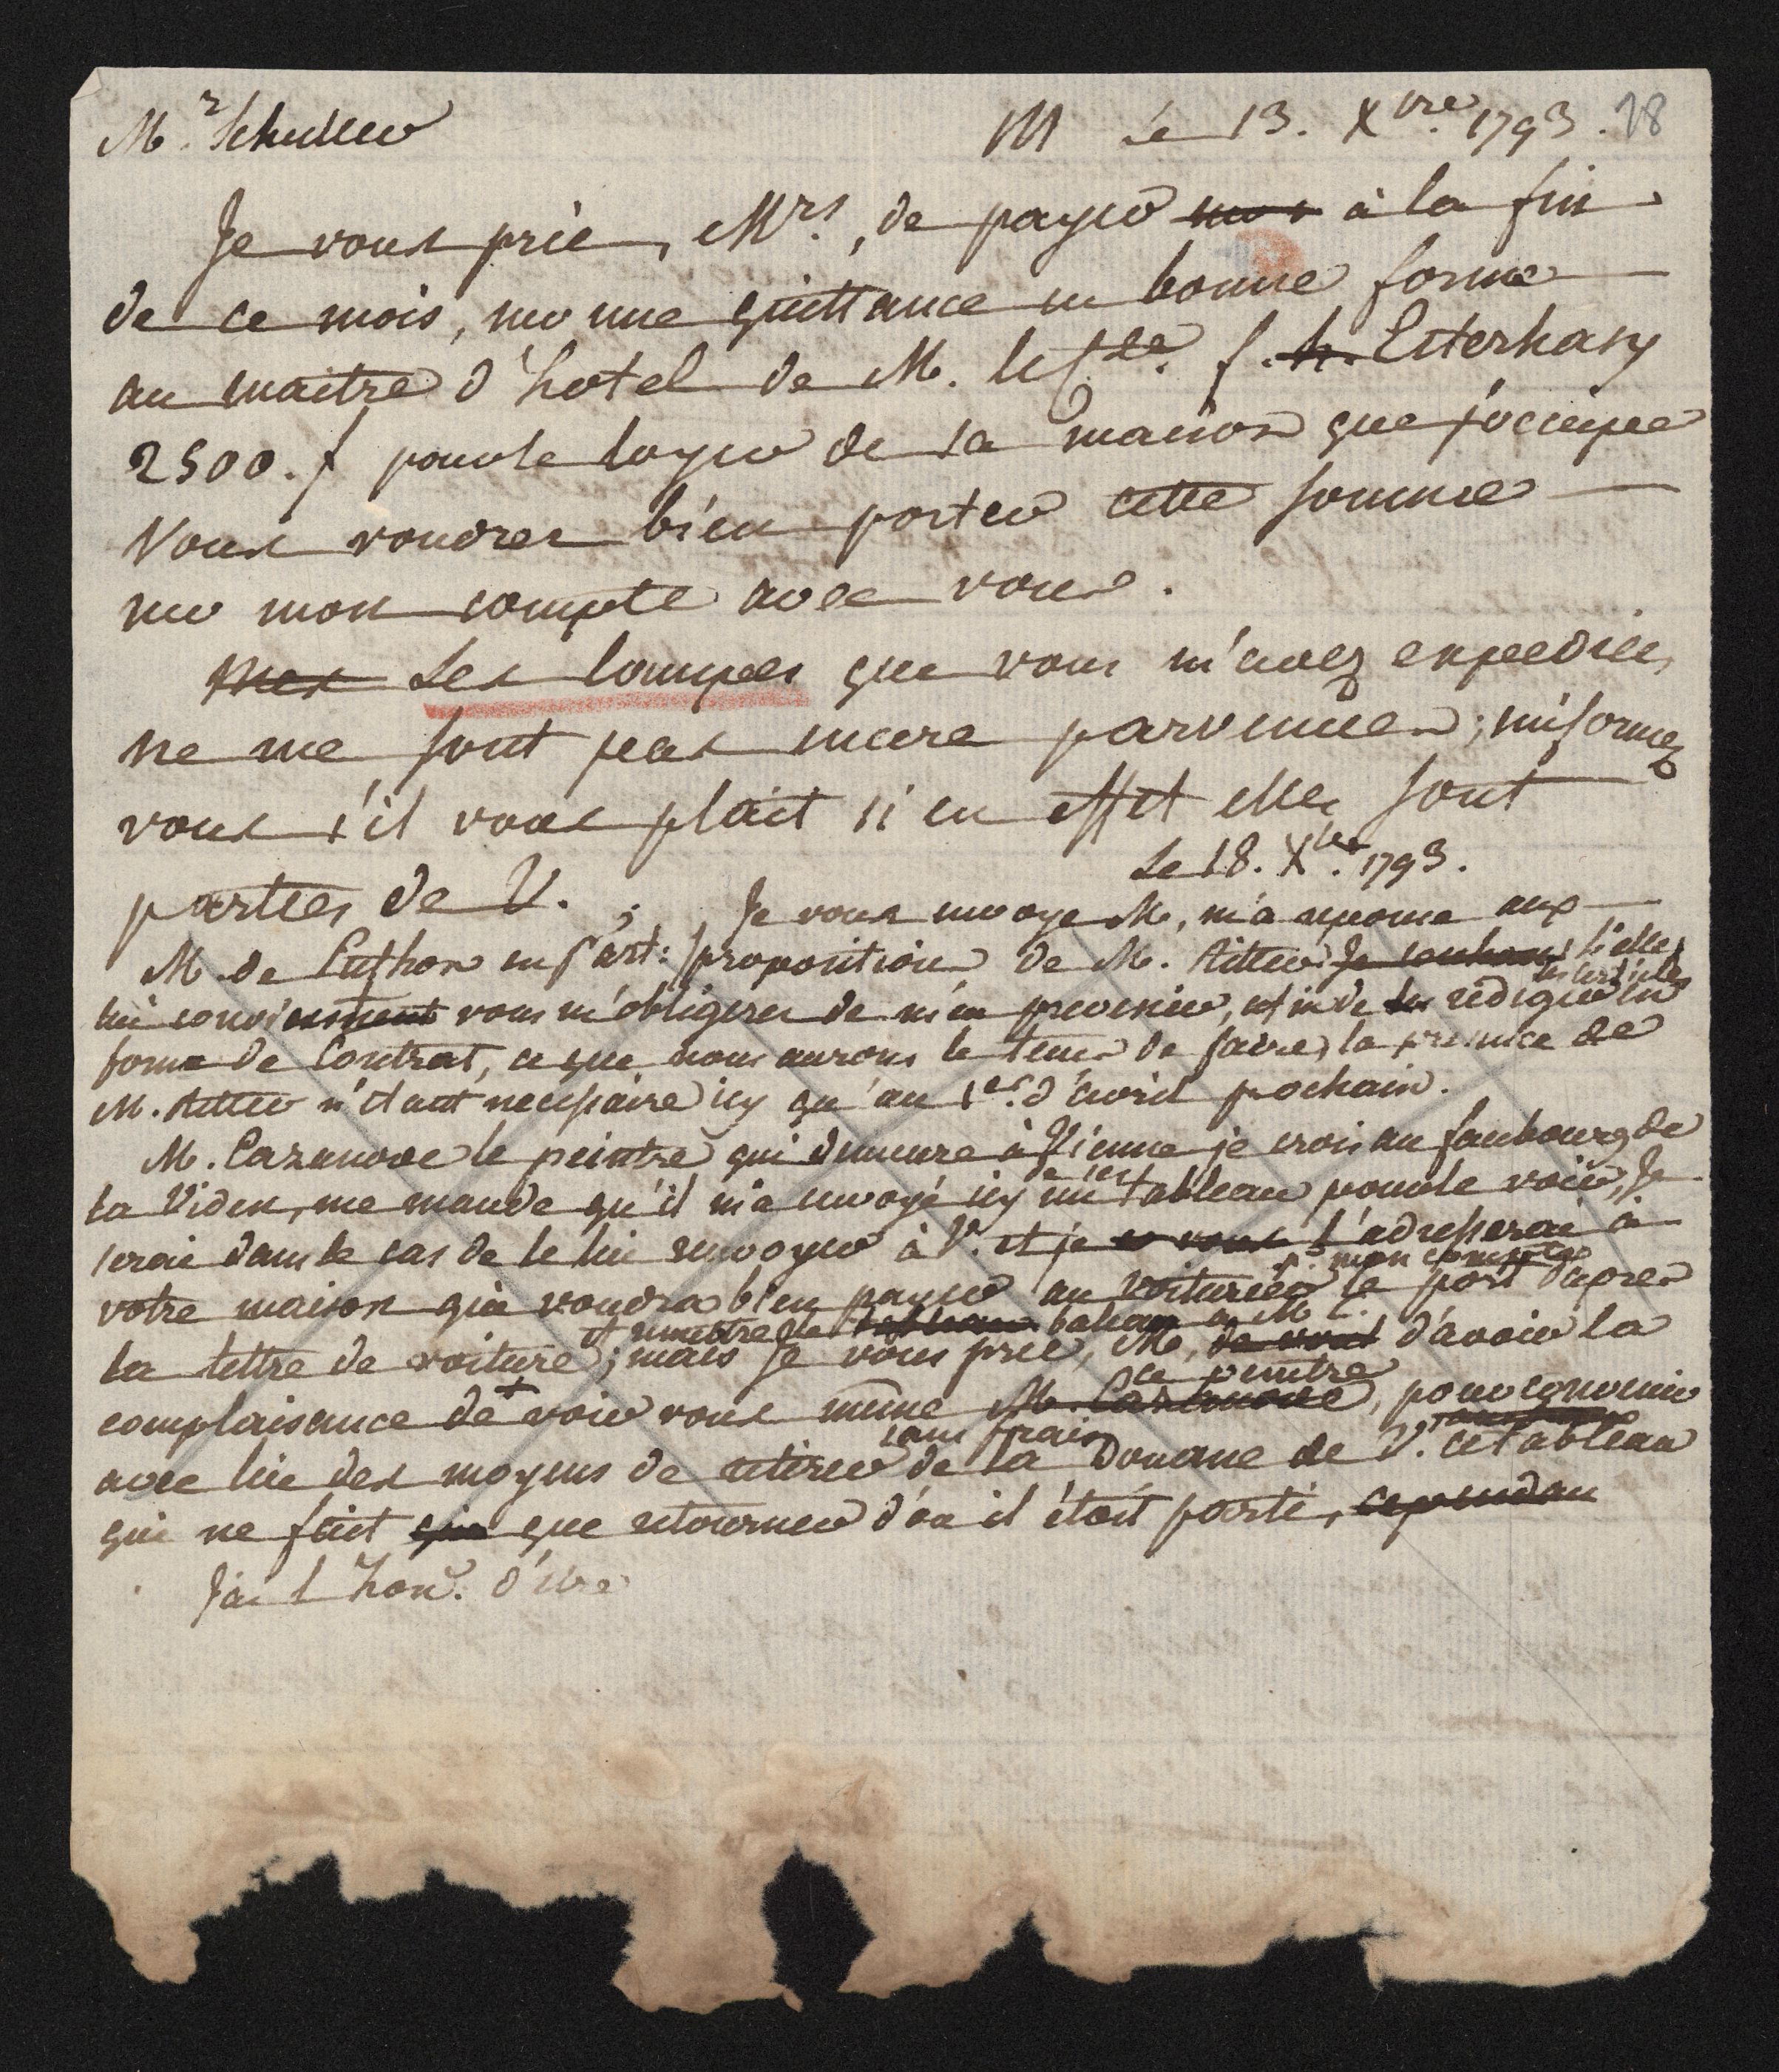 Mr. Schuller M Le 13. Xbre. 1793. 78
Je vous prie, Mrs., de payer à la fin
de ce mois, sur une quittance en bonne forme
au maitre d'hotel de M. le f. Esterhasy
2500. f pour le loyer de sa maison que j'occupe
Vous voudrez bien porter cette somme
sur mon compte avec vous.
Mes Les lampes que vous m'avez expediées
ne me sont pas encore parvenues; informez
vous s'il vous plait si en effet elles sont
Le 18. Xbre. 1793.
parties de V.
Je vous envoye M, ma reponse aux
M. de proposition de M. Ritter Je si elles
les articles
lui conviennent vous m'obligerez de m'en prevenir, afin de les rediger en
forme de Contrat, ce que nous aurons le tems de faire, la presence de
M. Ritter n'etant necessaire icy qu'au 1er. d'avril prochain.
M. Cazanove le peintre qui demeure à Vienne je crois au faubourg de
la Viden, me mande qu'il m'a envoyé icy un tableau pour le voir, Je
serai dans le cas de le lui renvoyer à V. et je vous l'adresserai à
pr. mon compte
votre maison qui voudra bien payer au voiturier le port d'apres
et remettre le
la lettre de voiture; mais je vous prie, M, de vous d'avoir la
ce peintre
complaisance de voir vous meme M. Cazanove, pour convenir
sans frais
avec lui des moyens de retirer de la Douane de V. ce tableau
qui ne fait que que retourner d'ou il étoit parti, cependan
J'ai l'honr. d'être